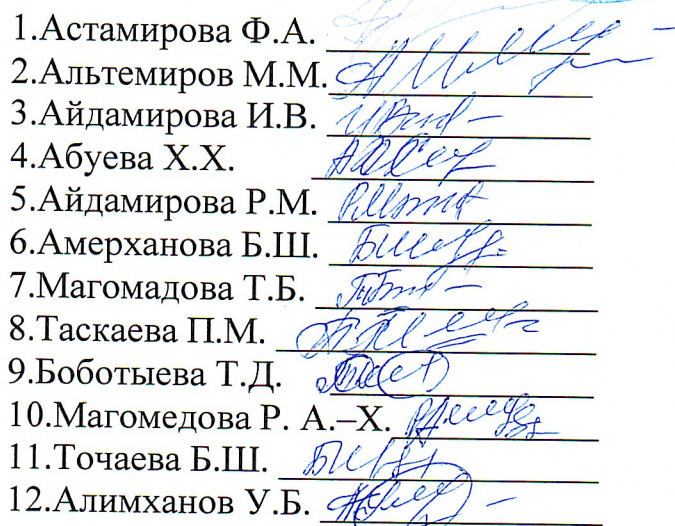 1.Астамирова Ф.А.
2.Альтемиров М.М.
3.Айдамирова И.В.
4.Абуева Х.Х.
5.Айдамирова Р.М.
6.Амерханова Б.Ш.
7.Магомадова Т.Б.
8.Таскаева П.М.
9.Боботыева Т.Д.
10.Магомедова Р. А.–Х.
11.Точаева Б.Ш.
12.Алимханов У.Б.